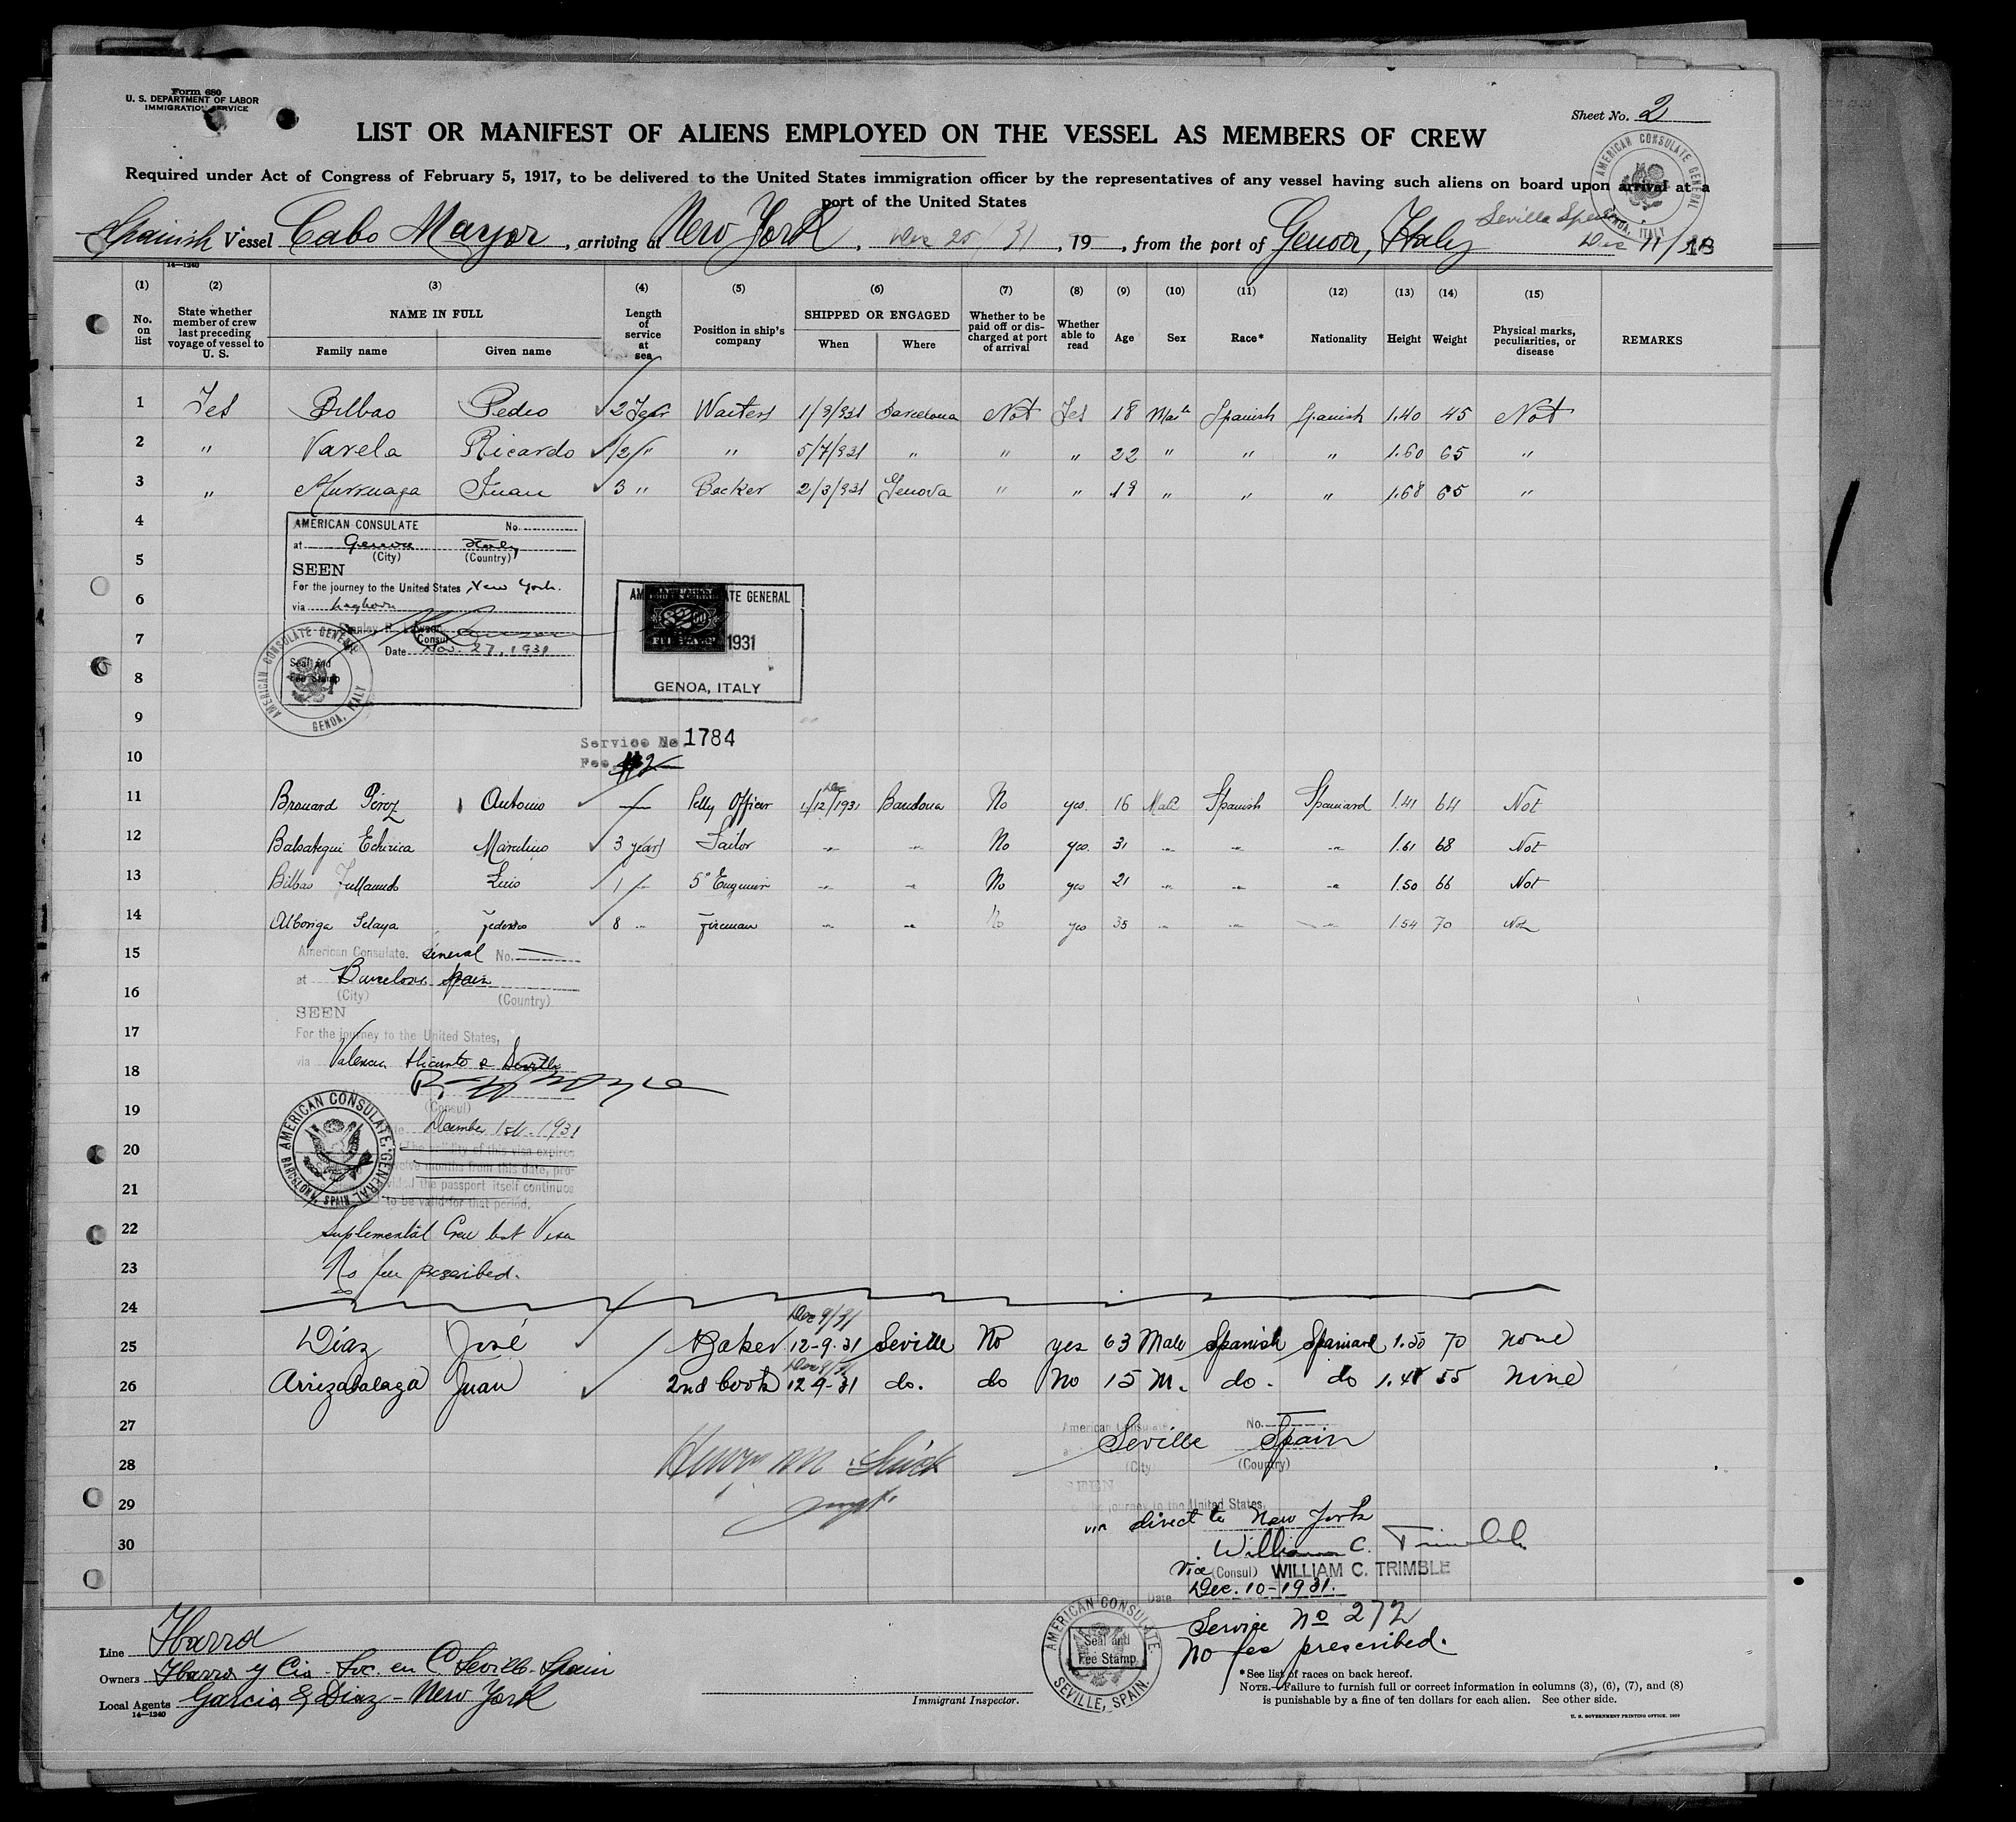 Form 680
U. S. DEPARTMENT OF LABOR
IMMIGRATION SERVICE
Sheet No. 2
LIST OR MANIFEST OF ALIENS EMPLOYED ON THE VESSEL AS MEMBERS OF CREW
Required under Act of Congress of February 5, 1917, to be delivered to the United States immigration officer by the representatives of any vessel having such aliens on board upon arrival at a
port of the United States
AMERICAN CONSULATE GENERAL GENOA, ITALY
Sevilla Spain
Spanish Vessel Cabo Mayor, arriving at New York, Dec 25 31, 19, from the port of Genova, Italy Dec 11/
14—1240
(1) (2) (3) (4) (5) (6) (7) (8) (9) (10) (11) (12) (13) (14) (15)
No. on list
State whether member of crew last preceding voyage of vessel to U. S.
NAME IN FULL
Family name Given name
Length of service at sea
Position in ship's company
SHIPPED OR ENGAGED
When Where
Whether to be paid off or discharged at port of arrival
Whether able to read
Age Sex Race* Nationality Height Weight
Physical marks, peculiarities, or disease
REMARKS
1 Yes Bilbao Pedro 2 Year Waiters 1/9/931 Barcelona Not Yes 18 Male Spanish Spanish 1.40 45 Not
2 " Varela Ricardo 1/2 " " 5/7/931 " " " 22 " " " 1.60 65 "
3 " Murruaga Juan 3 " Backer 2/3/931 Genova " " 19 " " " 1.68 65 "
4
AMERICAN CONSULATE No.
at Genoa Italy
(City) (Country)
5
SEEN
For the journey to the United States, New York.
6
via Leghorn
AMERICAN CONSULATE GENERAL
$2.00
1931
GENOA, ITALY
7
Consul
Date Nov. 27, 1931
Seal and
Fee Stamp
AMERICAN CONSULATE GENERAL GENOA, ITALY
8
9
Service No 1784
10
Fee $2
11 Brouard Pérez Antonio Petty Officer 1/12/1931 Dec Barcelona No yes 16 Male Spanish Spaniard 1.41 64 Not
12 Balsategui Echirica Marcelino 3 years Sailor No yes 31 1.61 68 Not
13 Bilbao Luis 1 5° Engineer No yes 21 1.50 66 Not
14 Alboniga Selaya Federico 8 Fireman No yes 35 1.54 70 Not
15
American Consulate. General No.
at Barcelona Spain
16
(City) (Country)
SEEN
17
For the journey to the United States,
18
via Valencia Alicante & Seville
19
(Consul)
December 1st. 1931
20
The validity of this visa expires
twelve months from this date, pro-
21
vided the passport itself continues
to be valid for that period.
AMERICAN CONSULATE GENERAL BARCELONA, SPAIN
22 Suplemental Crew list Visa
23 No fee prescribed.
24
Dec 9/31
25 Díaz José Baker 12-9-31 Seville No yes 63 Male Spanish Spaniard 1.50 70 none
Dec 9/31
26 Arrizabalaga Juan 2nd Cook 12 9-31 do. do No 15 M. do. do 1.48 55 none
27
American Consulate No.
Seville Spain
28
(City) (Country)
SEEN
29
journey to the United States,
via direct to New York
30
William C. Trimble
Vice (Consul) WILLIAM C. TRIMBLE
Date Dec. 10-1931.
Service No 272
No fee prescribed.
AMERICAN CONSULATE SEVILLE, SPAIN.
Seal and
Fee Stamp
Line Ibarra
Owners Ibarra y Cia. Soc. en C. Sevilla-Spain
Local Agents Garcia & Diaz - New York
14—1240
Immigrant Inspector.
*See list of races on back hereof.
NOTE.—Failure to furnish full or correct information in columns (3), (6), (7), and (8)
is punishable by a fine of ten dollars for each alien. See other side.
U. S. GOVERNMENT PRINTING OFFICE: 1929